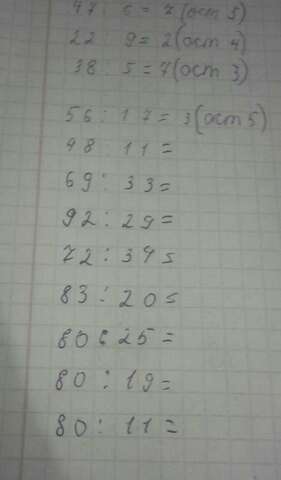 47 : 6 = 7 (ост 5)
22 : 9 = 2 (ост 4)
38 : 5 = 7 (ост 3)
56 : 17 = 3 (ост 5)
98 : 11 =
69 : 33 =
92 : 29 =
72 : 34 =
83 : 20 =
80 : 25 =
80 : 19 =
80 : 11 =